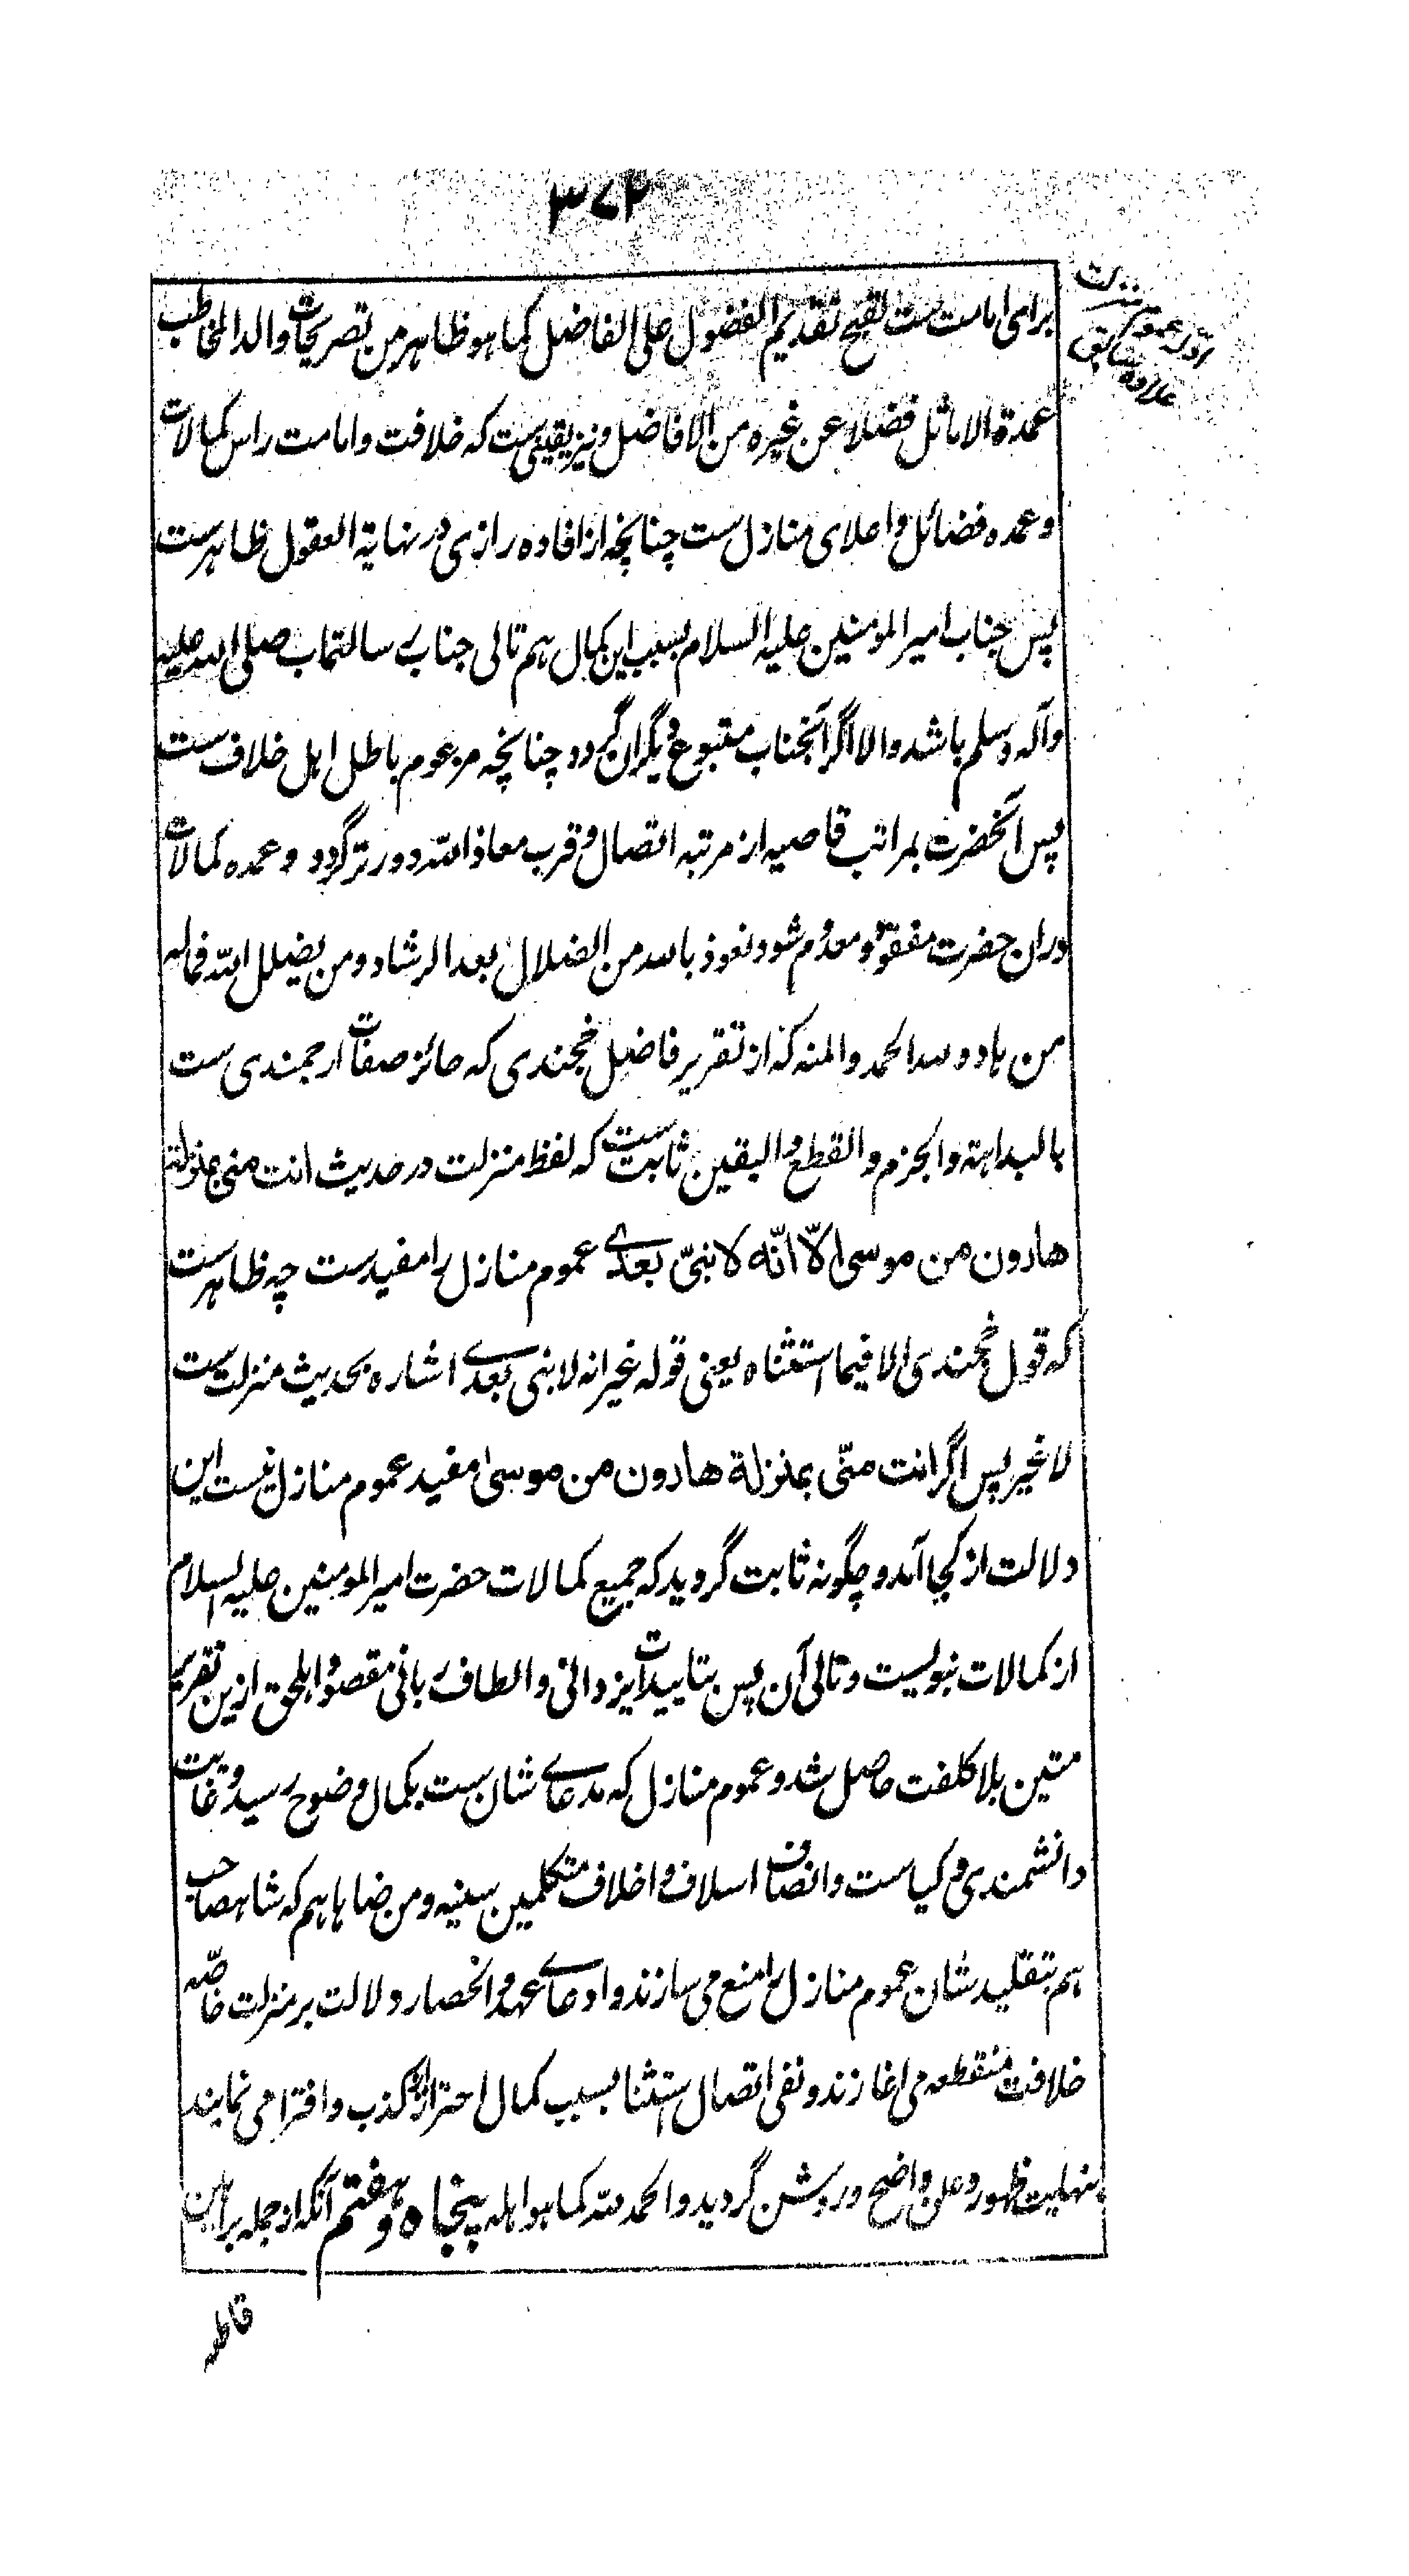 ۳۷۲
ادله عموم منزلت
علاوه سابق
برای امامت ست لقبح تقدیم المفضول علی الفاضل کما هو ظاهر من تصریحات والد المخاطب
عمدة الاماثل فضلا عن غیره من الافاضل و نیز یقینی ست که خلافت و امامت راس کمالات
و عمده فضائل و اعلای منازل ست چنانچه از افاده رازی در نهایة العقول ظاهرست
پس جناب امیر المومنین علیه السلام بسبب این کمال هم تالی جناب رسالتماب صلی الله علیه
وآله وسلم باشد و الا اگر آنجناب متبوع دیگران گردد چنانچه مزعوم باطل اهل خلاف ست
پس آنحضرت بمراتب قاصیه از مرتبه اتصال و قرب معاذ الله دورتر گردد و عمده کمالات
دران حضرت مفقود و معدوم شود و نعوذ بالله من الضلال بعد الرشاد ومن یضلل الله فما له
من هاد و لله الحمد والمنه که از تقریر فاضل خجندی که حائز صفات ارجمندی ست
بالبداهة والجزم والقطع والیقین ثابت ست که لفظ منزلت در حدیث انت منی بمنزلة
هارون من موسی الّا انّه لا نبیّ بعدی عموم منازل را مفیدست چه ظاهرست
که قول خجندی الا فیما استثناه یعنی قوله غیر انه لا نبی بعدی اشاره بحدیث منزلت ست
لا غیر پس اگر انت منّی بمنزلة هارون من موسیٰ مفید عموم منازل نیست این
دلالت از کجا آمد و چگونه ثابت گردید که جمیع کمالات حضرت امیر المومنین علیه السلام
از کمالات نبویست و تالی آن پس بتاییدات ایزدانی و الطاف ربانی مقصود اهل حق ازین تقریر
متین بلا کلفت حاصل شد و عموم منازل که مدعای شان ست بکمال وضوح رسید و غایت
دانشمندی و کیاست و انصاف اسلاف و اخلاف متکلمین سنیه و من ضاهاهم که شاهصاحب
هم بتقلید شان عموم منازل را منع می سازند و ادعای عهد و انحصار دلالت بر منزلت خاصّه
خلافت منقطعه می اغازند و نفی اتصال استثنا بسبب کمال احتراز از کذب و افترا می نمایند
بنهایت ظهور و علن واضح و روشن گردید و الحمد لله کما هو اهله پنجاه و هفتم آنکه از جمله براهین
قاطعه